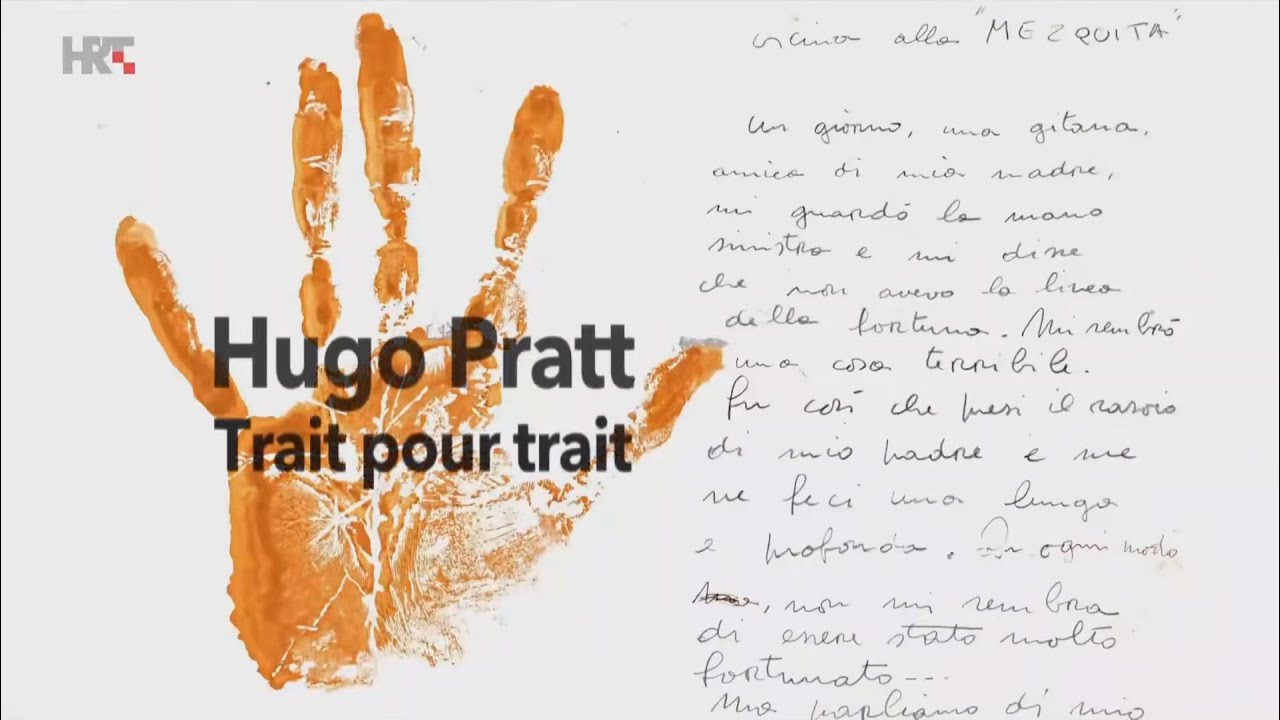 HRT
Hugo Pratt
Trait pour trait
vicino alla "MEZQUITA"
Un giorno, una gitana,
amica di mia madre,
mi guardò la mano
sinistra e mi disse
che non avevo la linea
della fortuna. Mi sembrò
una cosa terribile.
Fu così che presi il rasoio
di mio padre e me
ne feci una lunga
e profonda. In ogni modo
, non mi sembra
di essere stato molto
fortunato---
Ma parliamo di mio